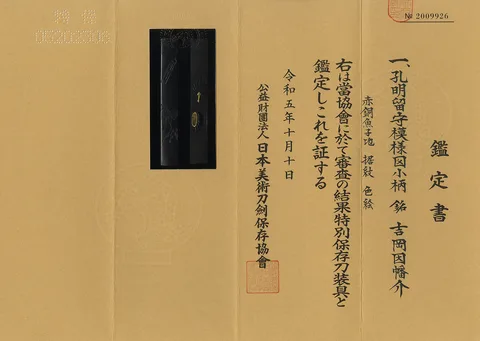 № 2009926
鑑定書
一、孔明留守模様図小柄 銘 吉岡因幡介
赤銅魚子地 据紋 色絵
右は當協會に於て審査の結果特別保存刀装具と
鑑定しこれを証する
令和五年十月十日
公益財團法人日本美術刀劍保存協會